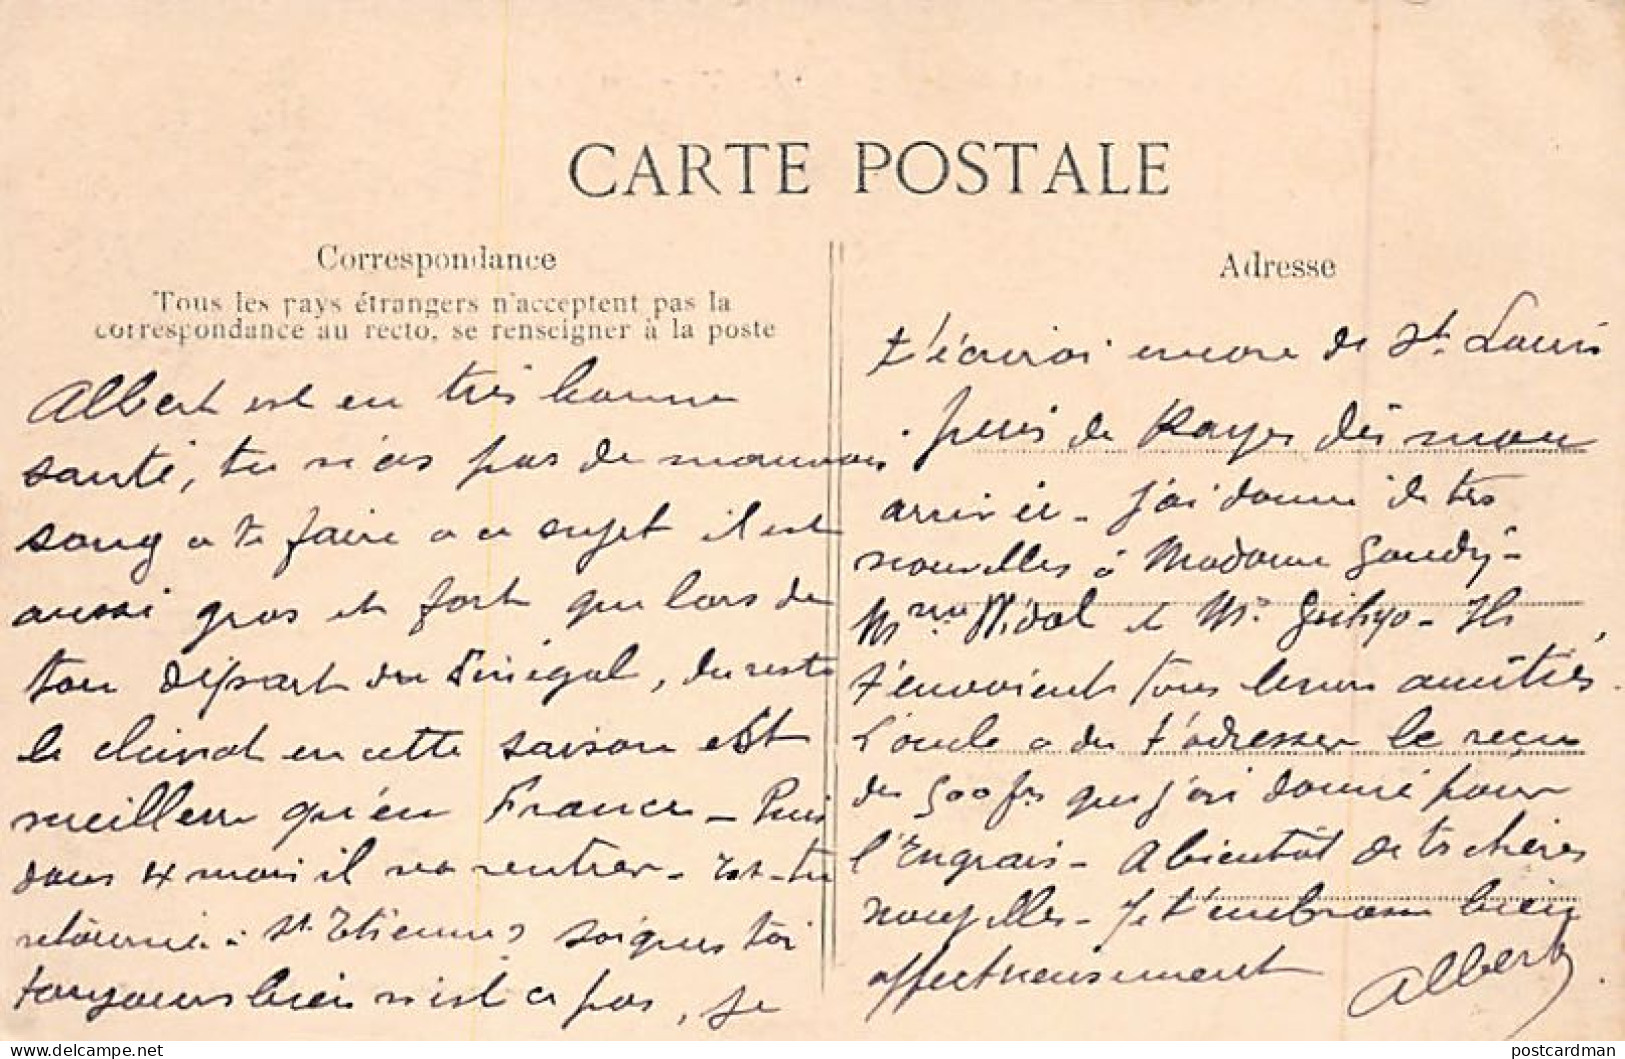 CARTE POSTALE
Correspondance
Tous les pays étrangers n'acceptent pas la
correspondance au recto, se renseigner à la poste
Albert est en très bonne
santé, tu n'as pas de mauvais
sang a te faire a ce sujet il est
aussi gros et fort que lors de
ton départ du Sénégal, du reste
le climat en cette saison est
meilleur qu'en France - Puis
dans 4 mois il va rentrer - Est-tu
retourné à St. Etienne? soignes toi
toujours bien n'est ce pas, je
Adresse
t'écrirai encore de St. Louis
puis de Kayes dès mon
arrivée - j'ai donné de tes
nouvelles à Madame Gaudy -
Mme Vidal et Mr. - Ils
t'envoient tous leurs amitiés.
L'oncle a du t'adresser le reçu
des 500 frs que j'ai donné pour
l'Engrais - A bientôt de tes chères
nouvelles - Je t'embrasse bien
affectueusement Albert
delcampe.net
postcardman